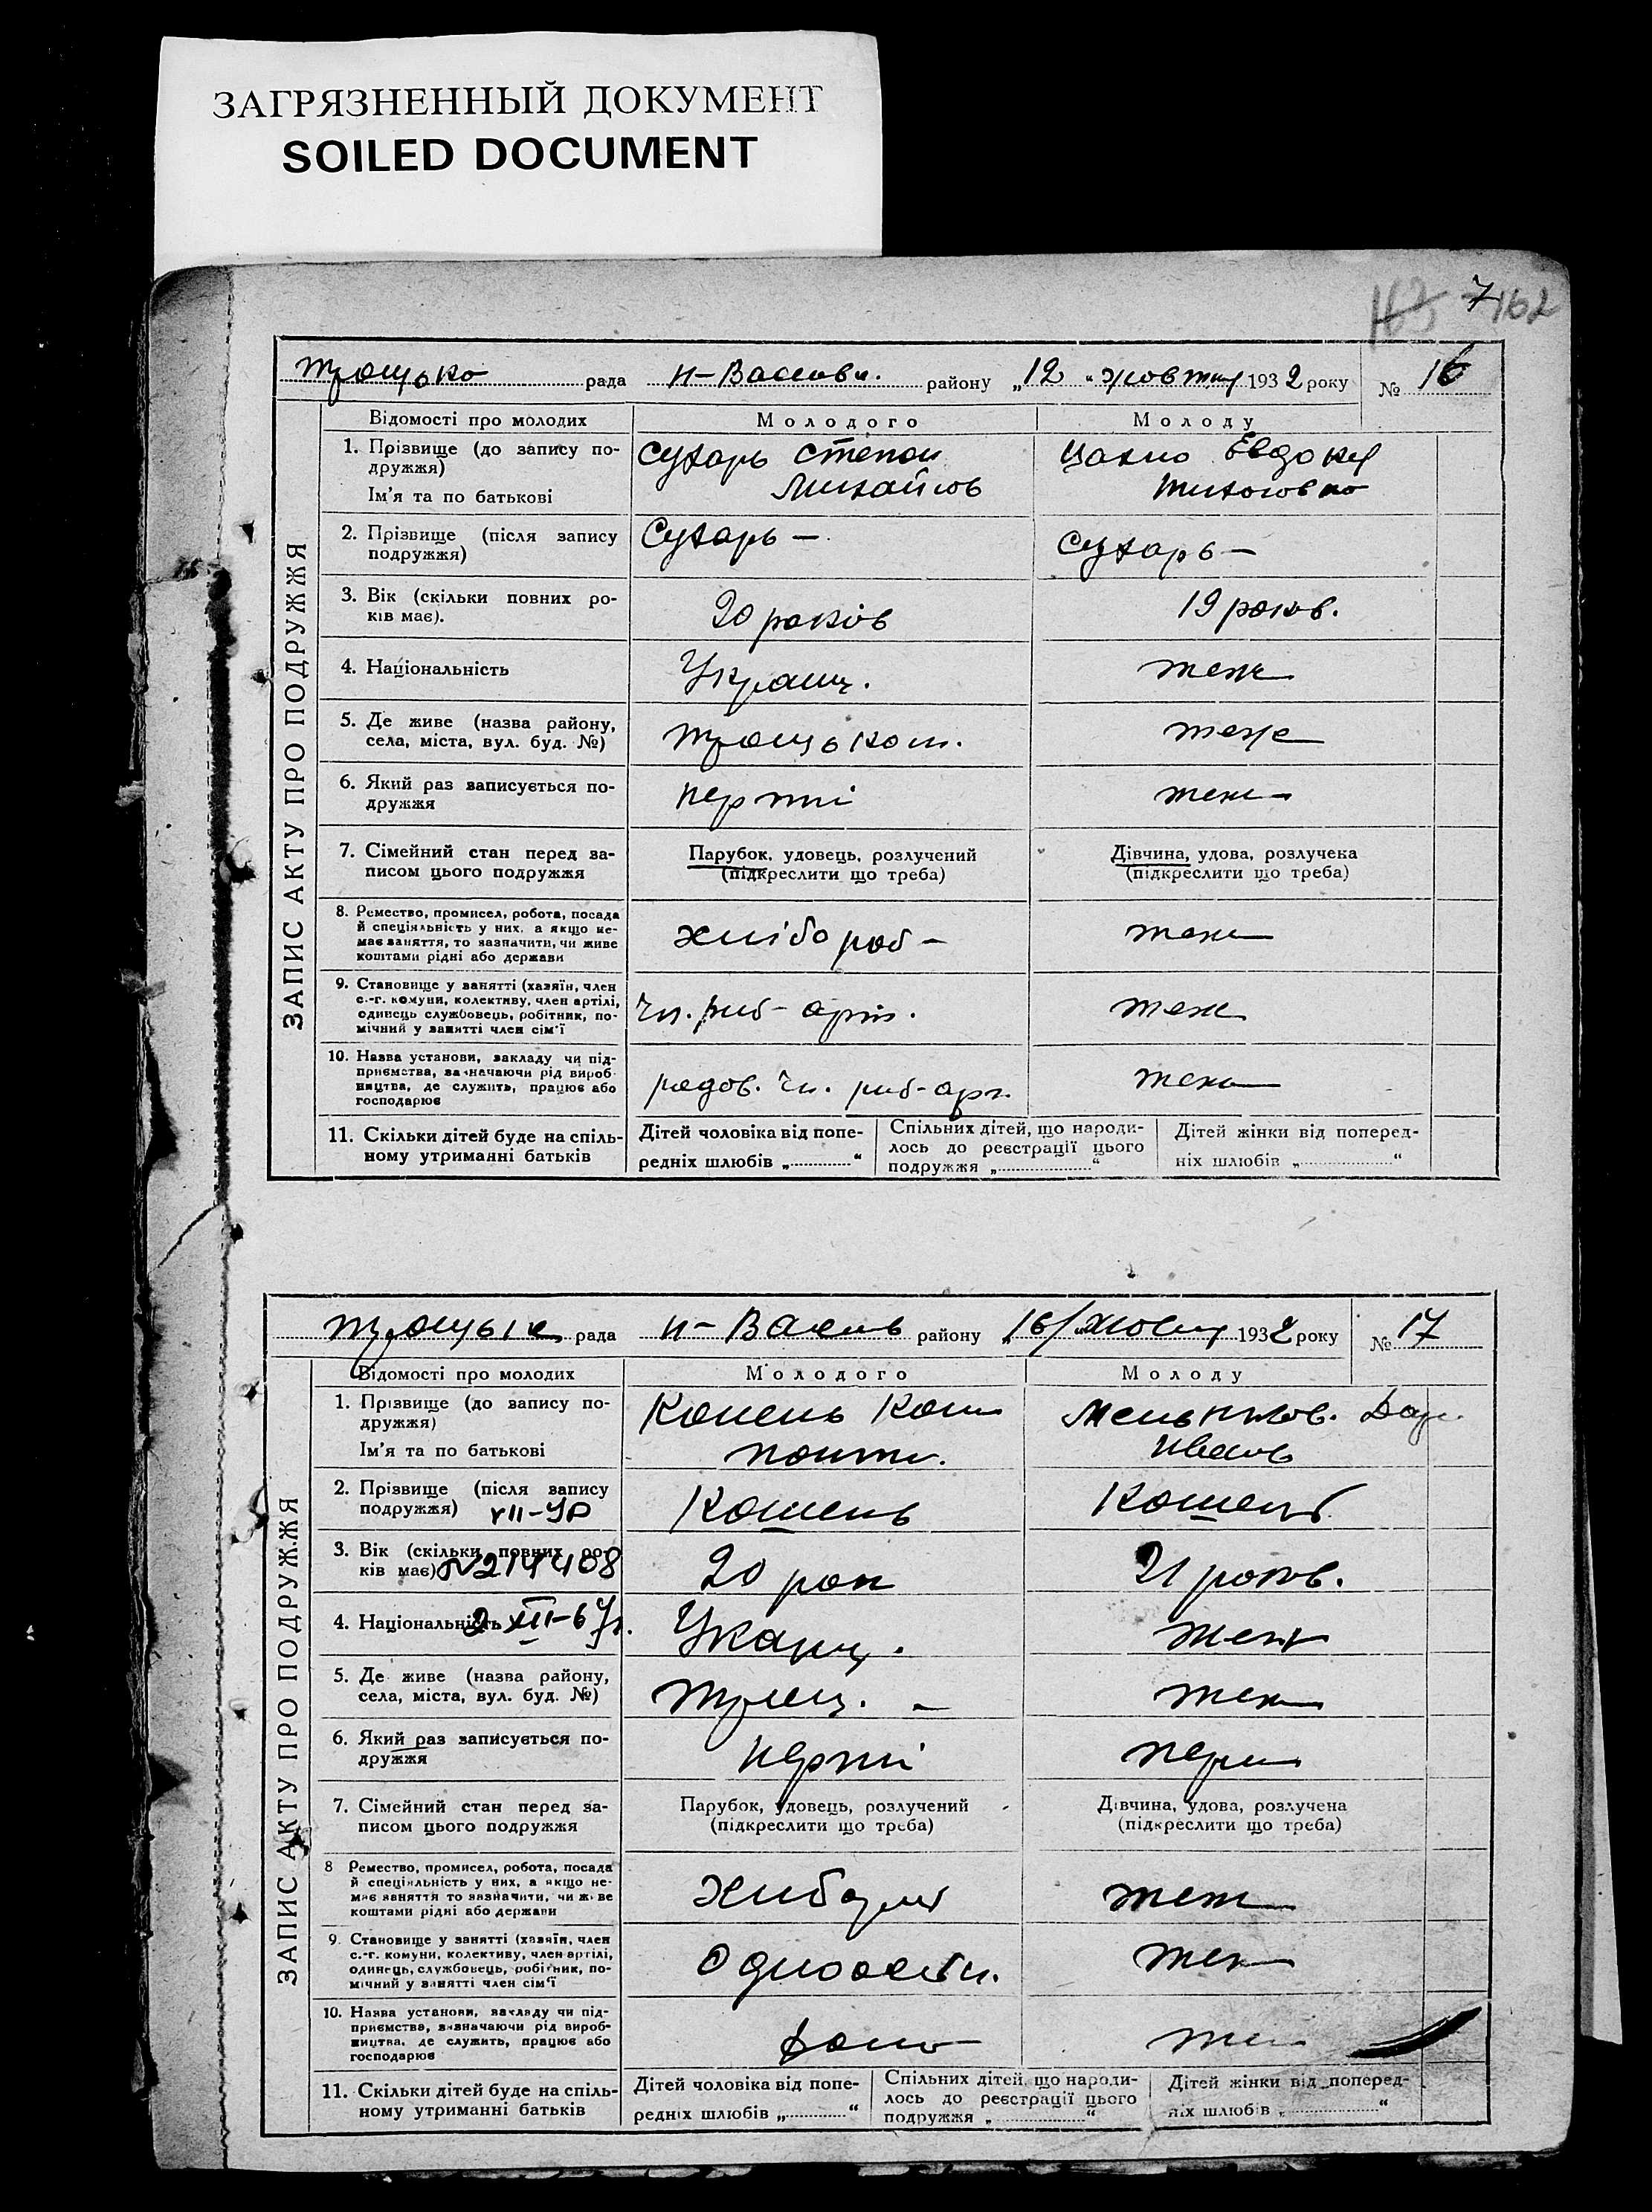 ЗАГРЯЗНЕННЫЙ ДОКУМЕНТ
SOILED DOCUMENT
7 162
рада Н-Васив. району „12 “ жовтня 1932 року № 16
ЗАПИС АКТУ ПРО ПОДРУЖЖЯ
Відомості про молодих Молодого Молоду
1. Прізвище (до запису по-
дружжя)
Ім'я та по батькові
Сухарь Степан
Михайлов
Цахно Евдокия
Тихоновна
2. Прізвище (після запису
подружжя)
Сухарь –
Сухарь –
3. Вік (скільки повних ро-
ків має).
20 років
19 років.
4. Національність
Украин.
теж
5. Де живе (назва району,
села, міста, вул. буд. №)
теж
6. Який раз записується по-
дружжя
перший
теж
7. Сімейний стан перед за-
писом цього подружжя
Парубок, удовець, розлучений
(підкреслити що треба)
Дівчина, удова, розлучека
(підкреслити що треба)
8. Ремество, промисел, робота, посада
й спеціяльність у них, а якщо не-
має заняття, то зазначити, чи живе
коштами рідні або держави
хлібороб –
теж
9. Становище у занятті (хазяїн, член
с.-г. комуни, колективу, член артілі,
одинець службовець, робітник, по-
мічний у занятті член сім'ї
Чл. риб- арт.
теж
10. Назва установи, закладу чи під-
приємства, зазначаючи рід вироб-
ництва, де служить, працює або
господарює
рядов. чл. риб-арт.
теж
11. Скільки дітей буде на спіль-
ному утриманні батьків
Дітей чоловіка від попе-
редніх шлюбів „ “
Спільних дітей, що народи-
лось до реєстрації цього
подружжя „ “
Дітей жінки від поперед-
ніх шлюбів „ “
рада Н-Васив району 16/ 1932 року № 17
ЗАПИС АКТУ ПРО ПОДРУЖЖЯ
Відомості про молодих Молодого Молоду
1. Прізвище (до запису по-
дружжя)
Ім'я та по батькові
Кошель
Мельников. Дар.
Иванов
2. Прізвище (після запису
подружжя) VII-ЯР
Кошель
Кошель
3. Вік (скільки повних ро-
ків має) №214408
20 рок
21 років.
4. Національність 2 XII-67г.
Укаин.
теж
5. Де живе (назва району,
села, міста, вул. буд. №)
теж
6. Який раз записується по-
дружжя
перший
перш
7. Сімейний стан перед за-
писом цього подружжя
Парубок, удовець, розлучений
(підкреслити що треба)
Дівчина, удова, розлучена
(підкреслити що треба)
8 Ремество, промисел, робота, посада
й спеціяльність у них, а якщо не-
має заняття то зазначити, чи живе
коштами рідні або держави
теж
9. Становище у занятті (хазяїн, член
с.-г. комуни, колективу, член артілі,
одинець, службовець, робітник, по-
мічний у занятті член сім'ї
Одноосібн.
теж
10. Назва установи, закладу чи під-
приємства, зазначаючи рід вироб-
ництва, де служить, працює або
господарює
11. Скільки дітей буде на спіль-
ному утриманні батьків
Дітей чоловіка від попе-
редніх шлюбів „ “
Спільних дітей, що народи-
лось до реєстрації цього
подружжя „ “
Дітей жінки від поперед-
ніх шлюбів „ “